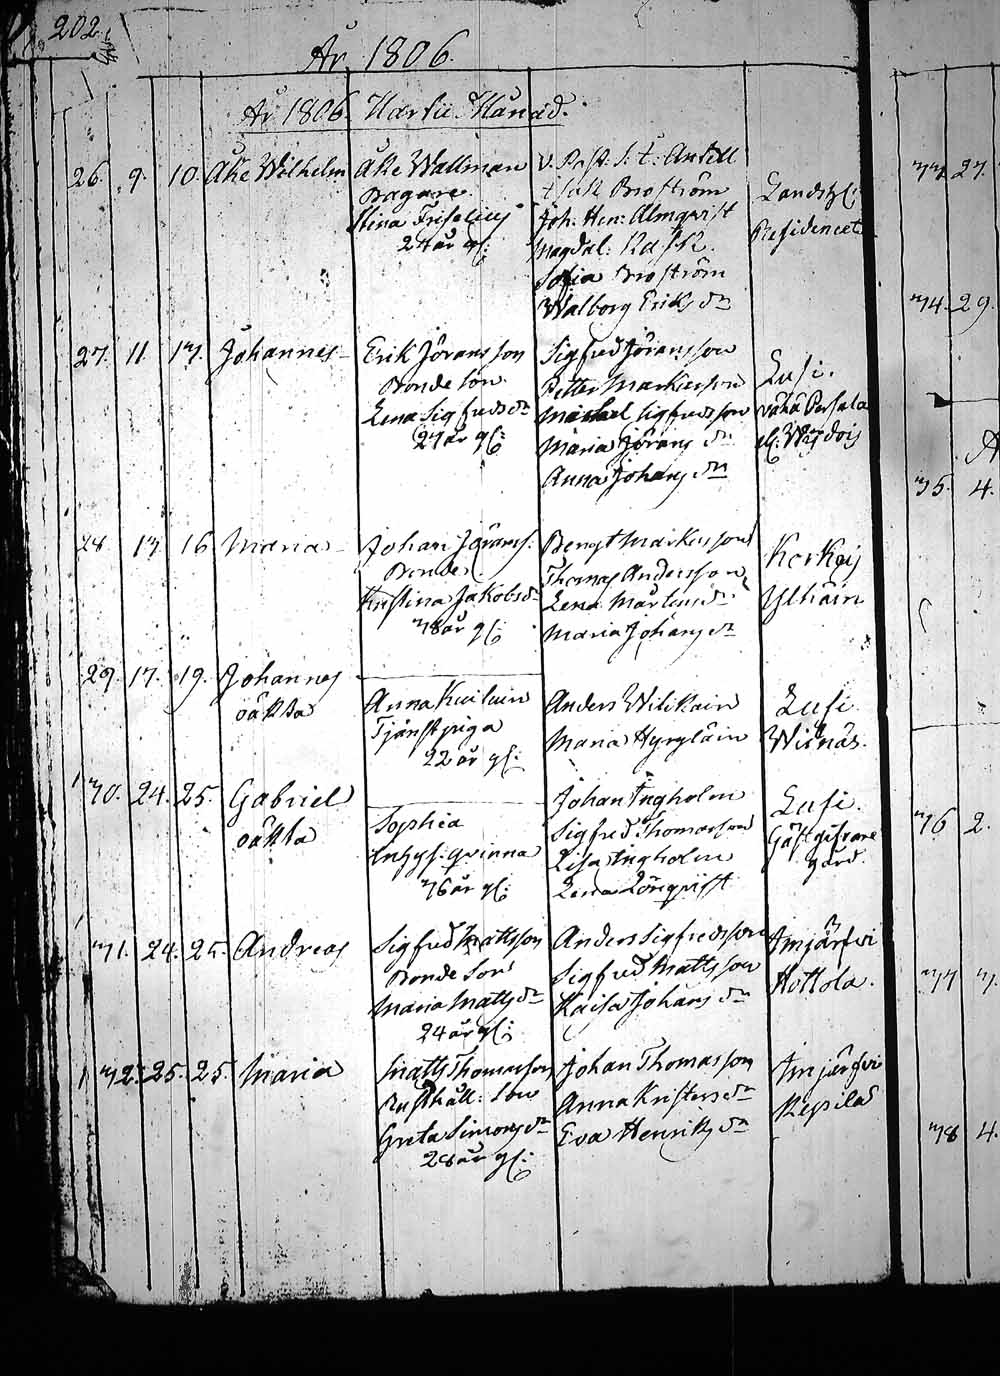 202.
År 1806.
År 1806. Martii Månad.
26. 9. 10. Åke Wilhelm Åke Wallman
Bagare.
Stina
24 år gl:
V. Past: S. t: Antell
Broström
Joh: Hen: Almqvist
Magdal: Kask.
Sofia Broström
Walborg Eriks dr
Residencet
27. 11. 13. Johannes Erik Jöransson
Bonde Son.
Lena Sigfreds dr
27 år gl:
Sigfred Jöransson
Petter Markusson
Michael Sigfredsson
Maria Jörans dr
Anna Johans dr
Lusi.
28 13. 16. Maria Johan Jöranss:
Bonde
Kristina Jakobs dr
38 år gl:
Bengt Markusson
Thomas Andersson
Lena Mårtens dr
Maria Johans dr
Korkois
Ylhäin
29. 17. 19. Johannes
oäkta
Anna
Tjänstpiga
22 år gl:
Anders Wilikain
Maria Hyryläin
Lusi
Wisnäs.
30. 24. 25. Gabriel
oäkta
Sophia
Inhys: qvinna
36 år gl:
Johan Ingholm
Sigfred Thomasson
Lisa Ingholm
Lena Lönqvist
Lusi.
Gästgifvare
gård.
31. 24. 25. Andreas Sigfred Mattsson
Bonde Son
Maria Matts dr
24 år gl:
Anders Sigfredsson
Sigfred Mattsson
Kaisa Johans dr
Imjärfvi
Hottola.
32. 25. 25. Maria Matts Thomasson
Rusthåll: Son
Greta Simons dr
28 år gl:
Johan Thomasson
Anna Kristers dr
Eva Henriks dr
Imjärfvi
Repilä
33 27.
34. 29.
35. 4.
36 2.
37 3.
38 4.